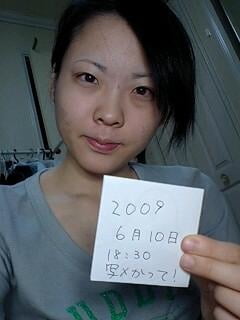 2009
6月10日
18:30
写メかって!